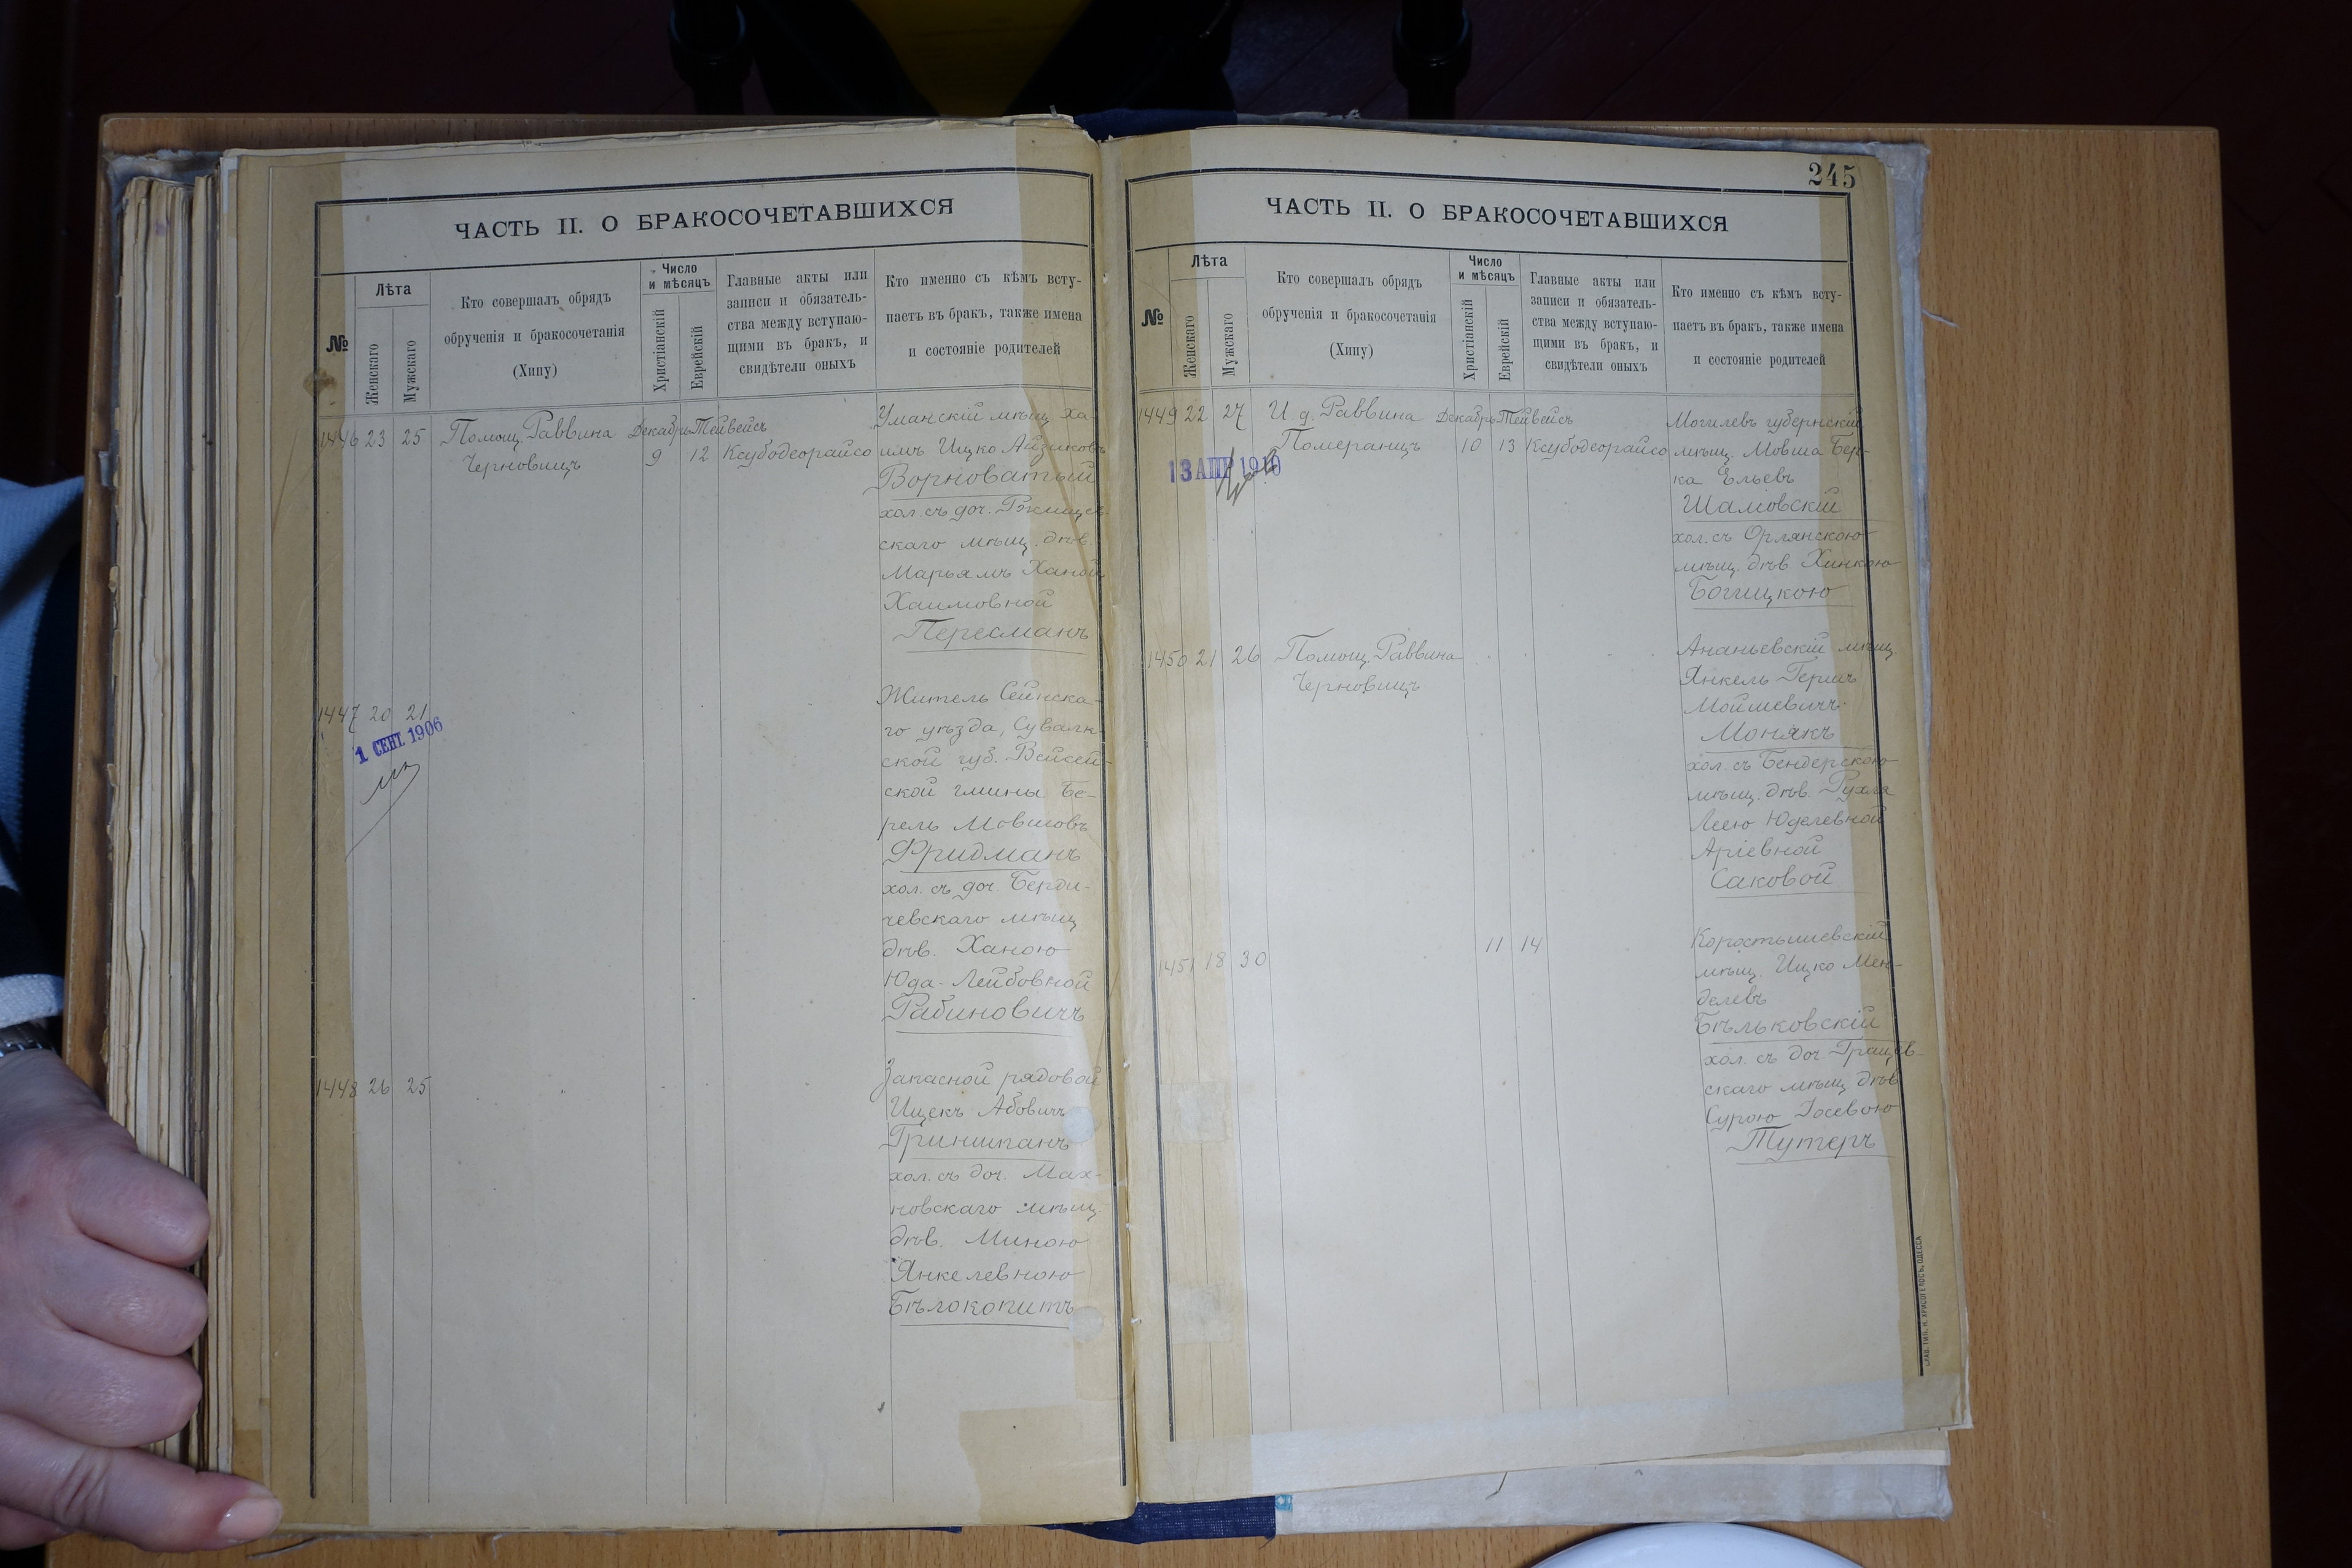 ЧАСТЬ II. О БРАКОСОЧЕТАВШИХСЯ
№
Лѣта
Женскаго
Мужскаго
Кто совершалъ обрядъ
обрученія и бракосочетанія
(Хипу)
Число
и мѣсяцъ
Христіанскій
Еврейскій
Главные акты или
записи и обязатель-
ства между вступаю-
щими въ бракъ, и
свидѣтели оныхъ
Кто именно съ кѣмъ всту-
паетъ въ бракъ, также имена
и состояніе родителей
1446 23 25
Помощ. Раввина
Черновицъ
Декабрь Тейвейсъ
9 12 Ксубодеорайсо
Уманскій мѣщ. Ха-
имъ Ицко Айзиковъ
Ворноватый
хол. съ доч. Ржищев-
скаго мѣщ. дѣв.
Марьямъ Ханой
Хаимовной
Пересманъ
1447 20 21
1 СЕНТ. 1906
Житель Сейнска-
го уѣзда, Сувалк-
ской губ. Вейсей-
ской гмины Бе-
рель Мовшовъ
Фридманъ
хол. съ доч. Берди-
чевскаго мѣщ.
дѣв. Ханою
Юда-Лейбовной
Рабиновичъ
1448 26 25
Запасной рядовой
Ицекъ Абовичъ
Гриншпанъ
хол. съ доч. Мах-
новскаго мѣщ.
дѣв. Миною
Янкелевною
Бѣлокопитъ
245
ЧАСТЬ II. О БРАКОСОЧЕТАВШИХСЯ
№
Лѣта
Женскаго
Мужскаго
Кто совершалъ обрядъ
обрученія и бракосочетанія
(Хипу)
Число
и мѣсяцъ
Христіанскій
Еврейскій
Главные акты или
записи и обязатель-
ства между вступаю-
щими въ бракъ, и
свидѣтели оныхъ
Кто именно съ кѣмъ всту-
паетъ въ бракъ, также имена
и состояніе родителей
1449 22 27
13 АПР 1910
И. д. Раввина
Померанцъ
Декабрь Тейвейсъ
10 13 Ксубодеорайсо
Могилевъ губернскій
мѣщ. Мовша Бер-
ка Ельевъ
Шамовскій
хол. съ Орлянскою
мѣщ. дѣв. Хинкою
Богицкою
1450 21 26
Помощ. Раввина
Черновицъ
Ананьевскій мѣщ.
Янкель Гершъ
Мойшевичъ
Монякъ
хол. съ Бендерскою
мѣщ. дѣв. Рухля
Леею Юделевной
Аріевной
Саковой
1451 18 30
11 14
Коростышевскій
мѣщ. Ицко Мен-
делевъ
Бѣльковскій
хол. съ доч.
скаго мѣщ. дѣв.
Сурою Іосевою
Тутеръ
СЛАВ. ТИП. Н. ХРИСОГЕЛОСЪ, ОДЕССА